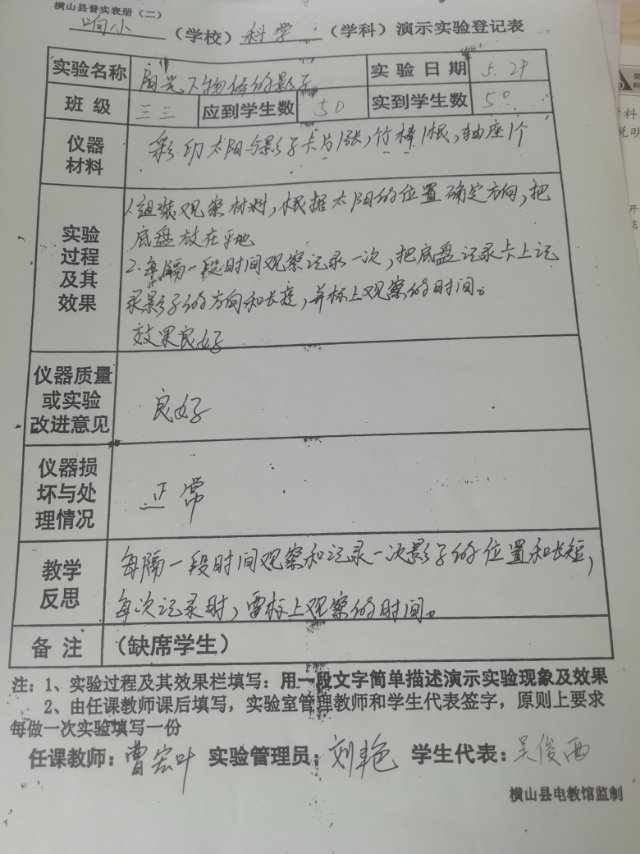 横山县普实表册（二）
响小（学校）科学（学科）演示实验登记表
实验名称 阳光下物体的影子 实验日期 5.29
班级 三三 应到学生数 50 实到学生数 50
仪器材料 彩印太阳与影子卡片1张,竹棒1根,轴座1个
实验过程及其效果
1.组装观察材料,根据太阳的位置确定方向,把
底盘放在平地
2.每隔一段时间观察记录一次,把底盘记录卡上记
录影子的方向和长度,并标上观察的时间。
效果良好
仪器质量或实验改进意见 良好
仪器损坏与处理情况 正常
教学反思
每隔一段时间观察和记录一次影子的位置和长短,
每次记录时,需标上观察的时间。
备注 （缺席学生）
注：1、实验过程及其效果栏填写：用一段文字简单描述演示实验现象及效果
2、由任课教师课后填写，实验室管理教师和学生代表签字，原则上要求
每做一次实验填写一份
任课教师：曹宏叶 实验管理员：刘艳 学生代表：吴俊西
横山县电教馆监制